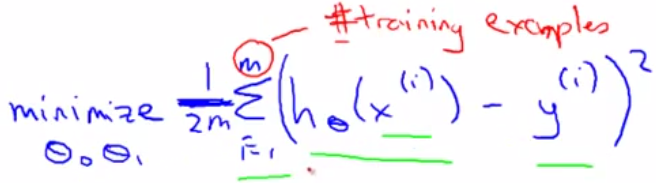 #training examples
minimize 1/2m Σ_{i=1}^{m} (h_θ(x^(i)) - y^(i))^2
θ₀ θ₁